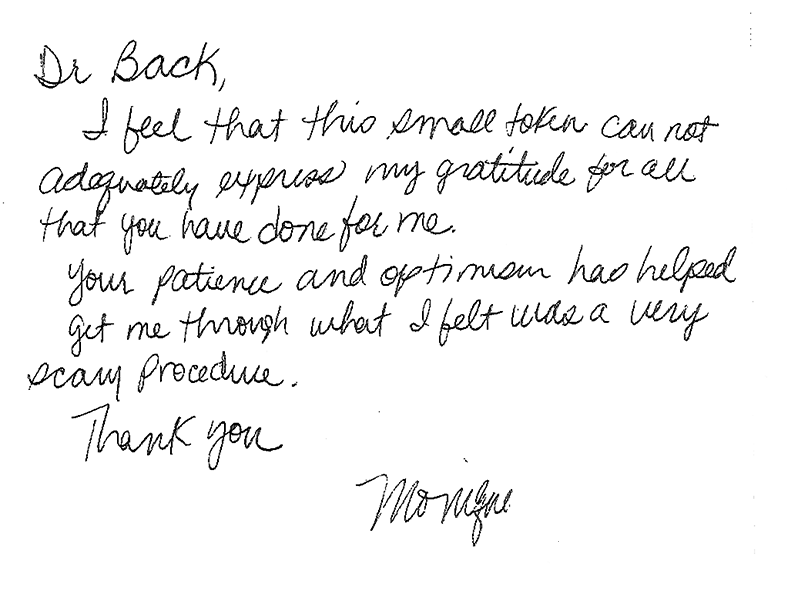 Dr Back,
I feel that this small token can not
adequately express my gratitude for all
that you have done for me.
Your patience and optimism has helped
get me through what I felt was a very
scary procedure.
Thank you
Monique